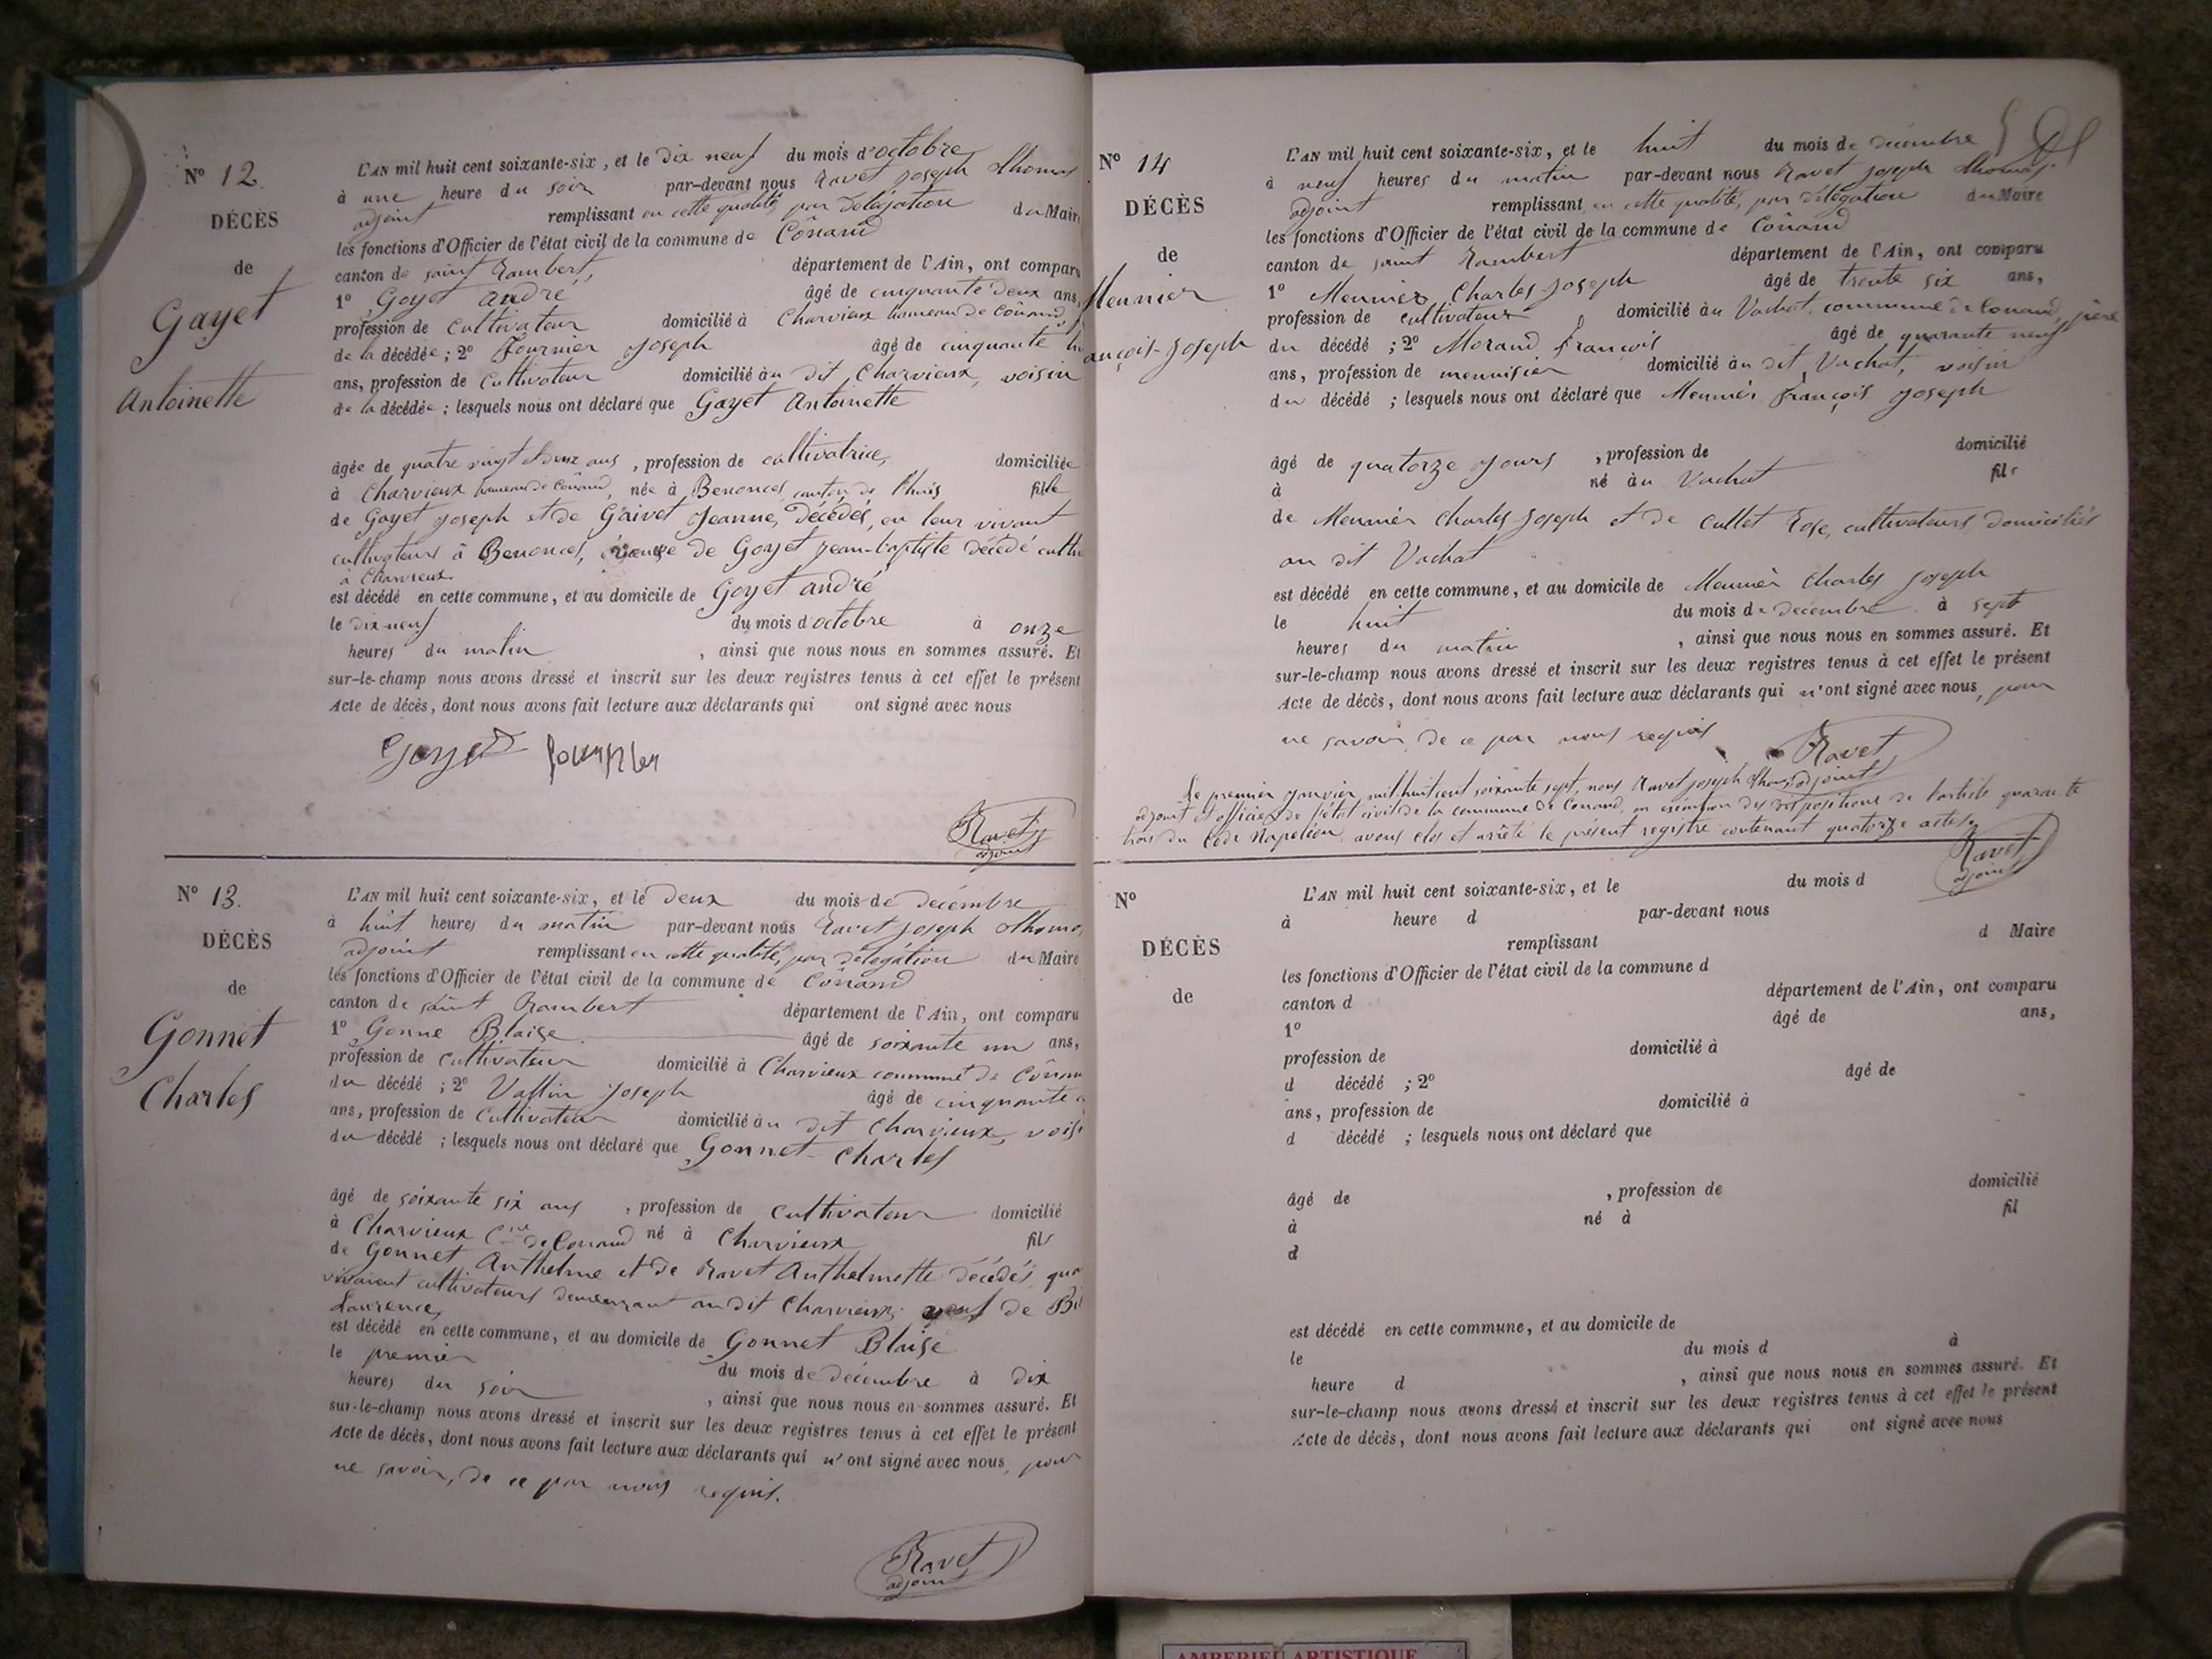 N° 12.
DÉCÈS
de
Gayet
Antoinette
L'AN mil huit cent soixante-six, et le dix neuf du mois d'octobre
à une heure du soir par-devant nous Ravet Joseph Thomas
adjoint remplissant en cette qualité, par délégation du Maire
les fonctions d'Officier de l'état civil de la commune de Conand
canton de saint Rambert, département de l'Ain, ont comparu
1° Goyet André âgé de cinquante deux ans,
profession de cultivateur domicilié à Charvieux hameau de Conand,
de la décédée ; 2° Fournier Joseph âgé de cinquante
ans, profession de cultivateur domicilié au dit Charvieux, voisin
de la décédée ; lesquels nous ont déclaré que Gayet Antoinette
âgée de quatre vingt deux ans, profession de cultivatrice, domiciliée
à Charvieux hameau de Conand, née à Benonces canton de Lhuis fille
de Gayet Joseph et de Gaivet Jeanne, décédés, en leur vivant
cultivateurs à Benonces, de Goyet Jean-baptiste décédé
à Charvieux
est décédé en cette commune, et au domicile de Goyet André
le dix-neuf du mois d octobre à onze
heures du matin , ainsi que nous nous en sommes assuré. Et
sur-le-champ nous avons dressé et inscrit sur les deux registres tenus à cet effet le présent
Acte de décès, dont nous avons fait lecture aux déclarants qui ont signé avec nous
Goyet fournier
Ravet
adjoint
N° 13.
DÉCÈS
de
Gonnet
Charles
L'AN mil huit cent soixante-six, et le deux du mois de décembre
à huit heures du matin par-devant nous Ravet Joseph Thomas
adjoint remplissant en cette qualité, par délégation du Maire
les fonctions d'Officier de l'état civil de la commune de Conand
canton de saint Rambert département de l'Ain, ont comparu
1° Gonne Blaise âgé de soixante un ans,
profession de cultivateur domicilié à Charvieux commune de Conand
du décédé ; 2° Vallin Joseph âgé de cinquante
ans, profession de cultivateur domicilié au dit Charvieux, voisin
du décédé ; lesquels nous ont déclaré que Gonnet Charles
âgé de soixante six ans , profession de cultivateur domicilié
à Charvieux Cne de Conand né à Charvieux fils
de Gonnet Anthelme et de Ravet Anthelmette décédés, qu
vivaient cultivateurs demeurant au dit Charvieux, veuf de
Laurence,
est décédé en cette commune, et au domicile de Gonnet Blaise
le premier du mois de décembre à dix
heures du soir , ainsi que nous nous en sommes assuré. Et
sur-le-champ nous avons dressé et inscrit sur les deux registres tenus à cet effet le présent
Acte de décès, dont nous avons fait lecture aux déclarants qui n'ont signé avec nous, pour
ne savoir, de ce par nous requis.
Ravet
adjoint
N° 14
DÉCÈS
de
Meunier
ançois-Joseph
L'AN mil huit cent soixante-six, et le huit du mois de décembre
à neuf heures du matin par-devant nous Ravet Joseph Thomas
adjoint remplissant en cette qualité, par délégation du Maire
les fonctions d'Officier de l'état civil de la commune de Conand
canton de saint Rambert département de l'Ain, ont comparu
1° Meunier Charles Joseph âgé de trente six ans,
profession de cultivateur domicilié au Vachat, commune de Conand, père
du décédé ; 2° Morand François âgé de quarante neuf
ans, profession de menuisier domicilié au dit Vachat, voisin
du décédé ; lesquels nous ont déclaré que Meunier François Joseph
âgé de quatorze jours , profession de domicilié
à né au Vachat fils
de Meunier Charles Joseph et de Cullet Rose, cultivateurs domiciliés
au dit Vachat
est décédé en cette commune, et au domicile de Meunier Charles Joseph
le huit du mois de décembre à sept
heures du matin , ainsi que nous nous en sommes assuré. Et
sur-le-champ nous avons dressé et inscrit sur les deux registres tenus à cet effet le présent
Acte de décès, dont nous avons fait lecture aux déclarants qui n'ont signé avec nous, pour
ne savoir, de ce par nous requis
Ravet
Le premier janvier mil huit cent soixante sept, nous Ravet Joseph Thomas adjoint
adjoint et officier de l'état civil de la commune de Conand, en exécution des dispositions de l'article quarante
trois du Code Napoléon, avons clos et arrêté le présent registre contenant quatorze actes.
Ravet
adjoint
N°
DÉCÈS
de
L'AN mil huit cent soixante-six, et le du mois d
à heure d par-devant nous
remplissant d Maire
les fonctions d'Officier de l'état civil de la commune d
canton d département de l'Ain, ont comparu
1° âgé de ans,
profession de domicilié à
d décédé ; 2° âgé de
ans, profession de domicilié à
d décédé ; lesquels nous ont déclaré que
âgé de , profession de domicilié
à né à fil
d
est décédé en cette commune, et au domicile de
le du mois d à
heure d , ainsi que nous nous en sommes assuré. Et
sur-le-champ nous avons dressé et inscrit sur les deux registres tenus à cet effet le présent
Acte de décès, dont nous avons fait lecture aux déclarants qui ont signé avec nous
AMBERIEU ARTISTIQUE